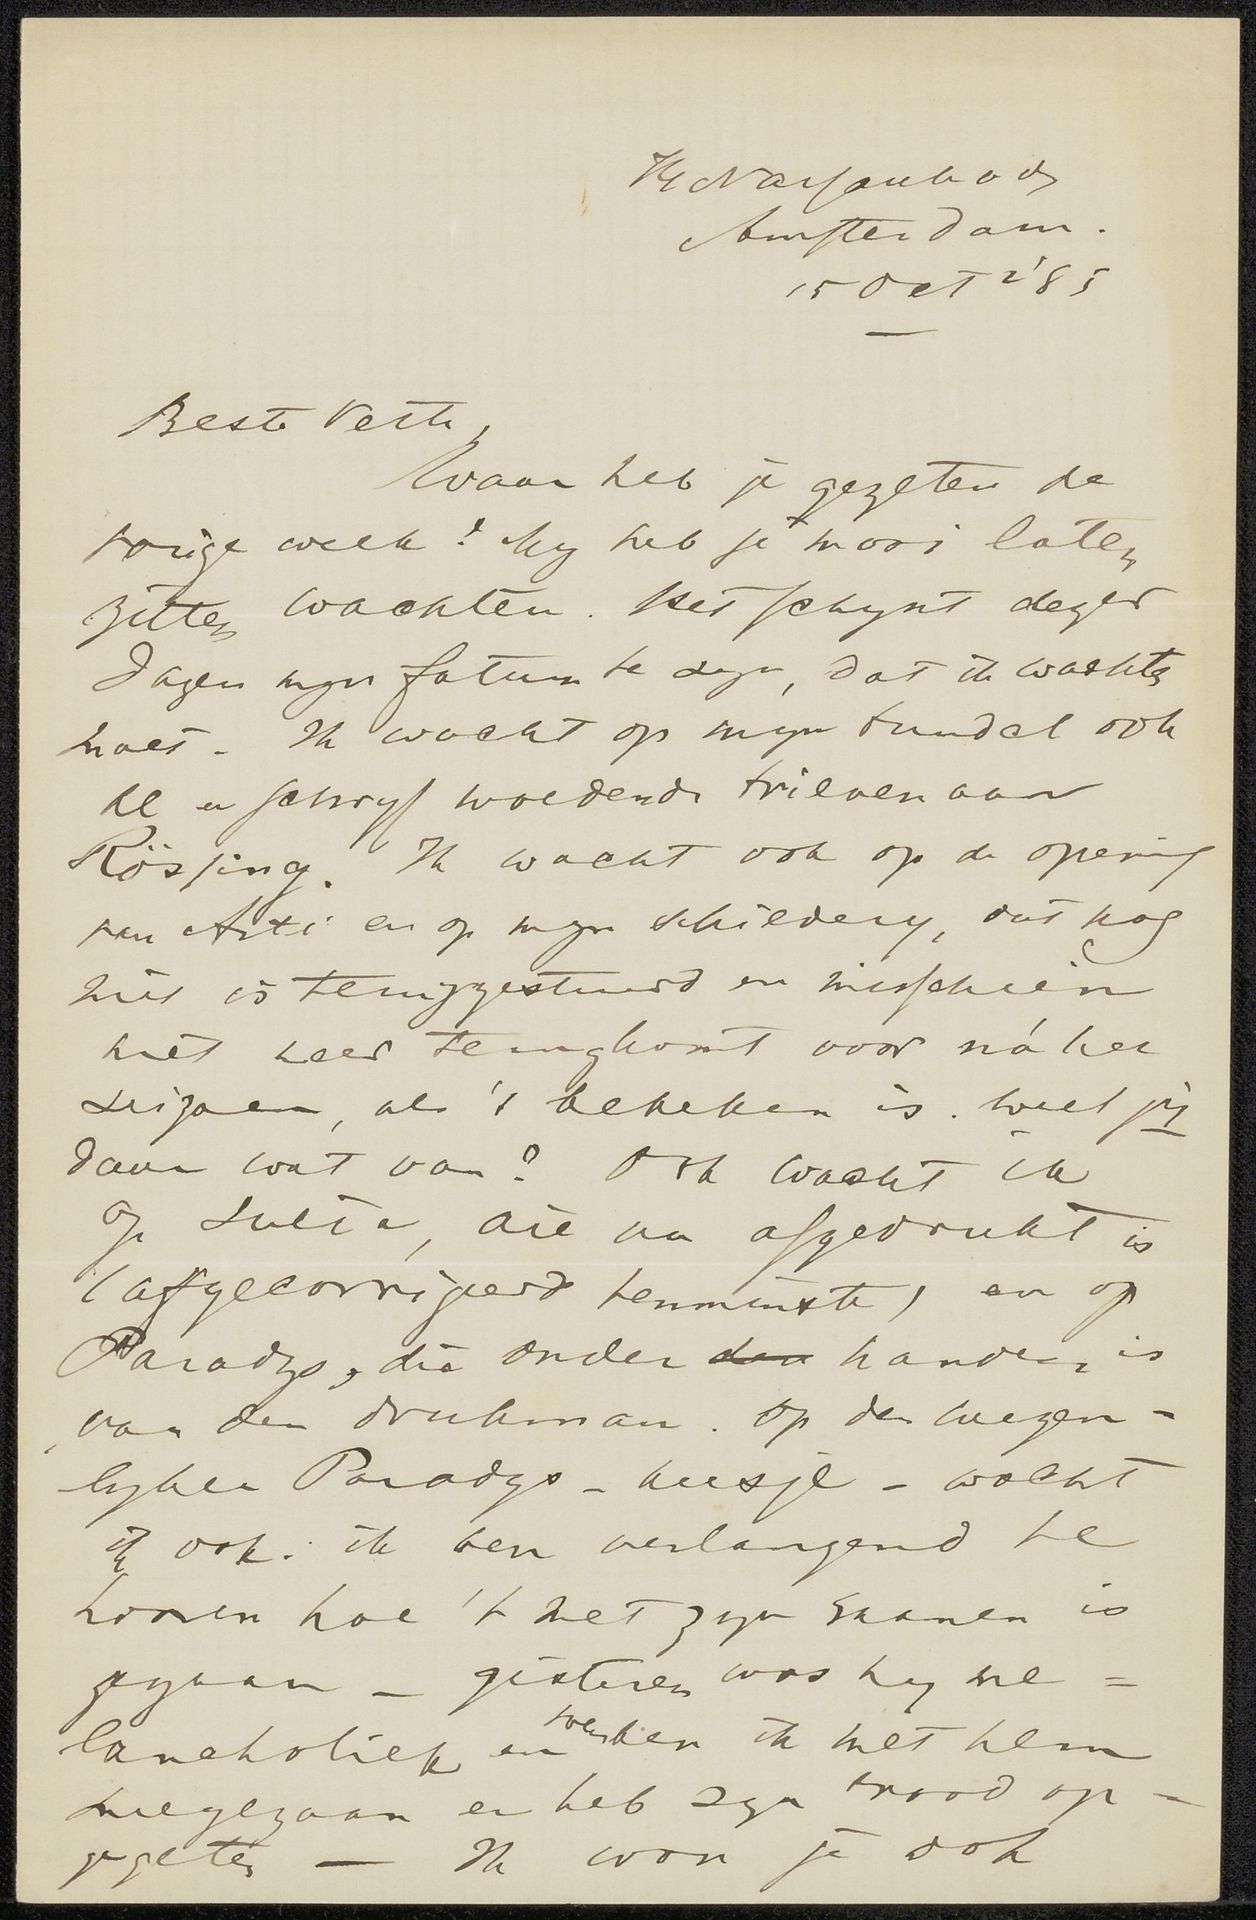 Amsterdam.
15 Oct '85
Beste Veth,
Waar heb je gezeten de
vorige week? My heb je mooi laten
zitten wachten. Het schynt dezer
dagen myn fatum te zyn, dat ik wachten
moet. Ik wacht op myn bundel ook
al en schryf woedende brieven aan
Rössing. Ik wacht ook op de opening
van Arti en op myn schildery, dat nog
niet is teruggestuurd en misschien
niet weer terugkomt voor náher
, als 't bekeken is. Weet jy
daar wat van? Ook wacht ik
op Julia, die nu afgedrukt is
(afgecorrigeerd tenminste) en op
Paradys, die onder handen is
van den drukman. Op den wezen-
lyken Paradys - keesje - wacht
ik ook. ik ben verlangend te
hooren hoe 't met zyn examen is
gegaan — gisteren was hy me=
lancholiek en toen ben ik met hem
meegegaan en heb zyn brood op-
gegeten — Ik won je ook